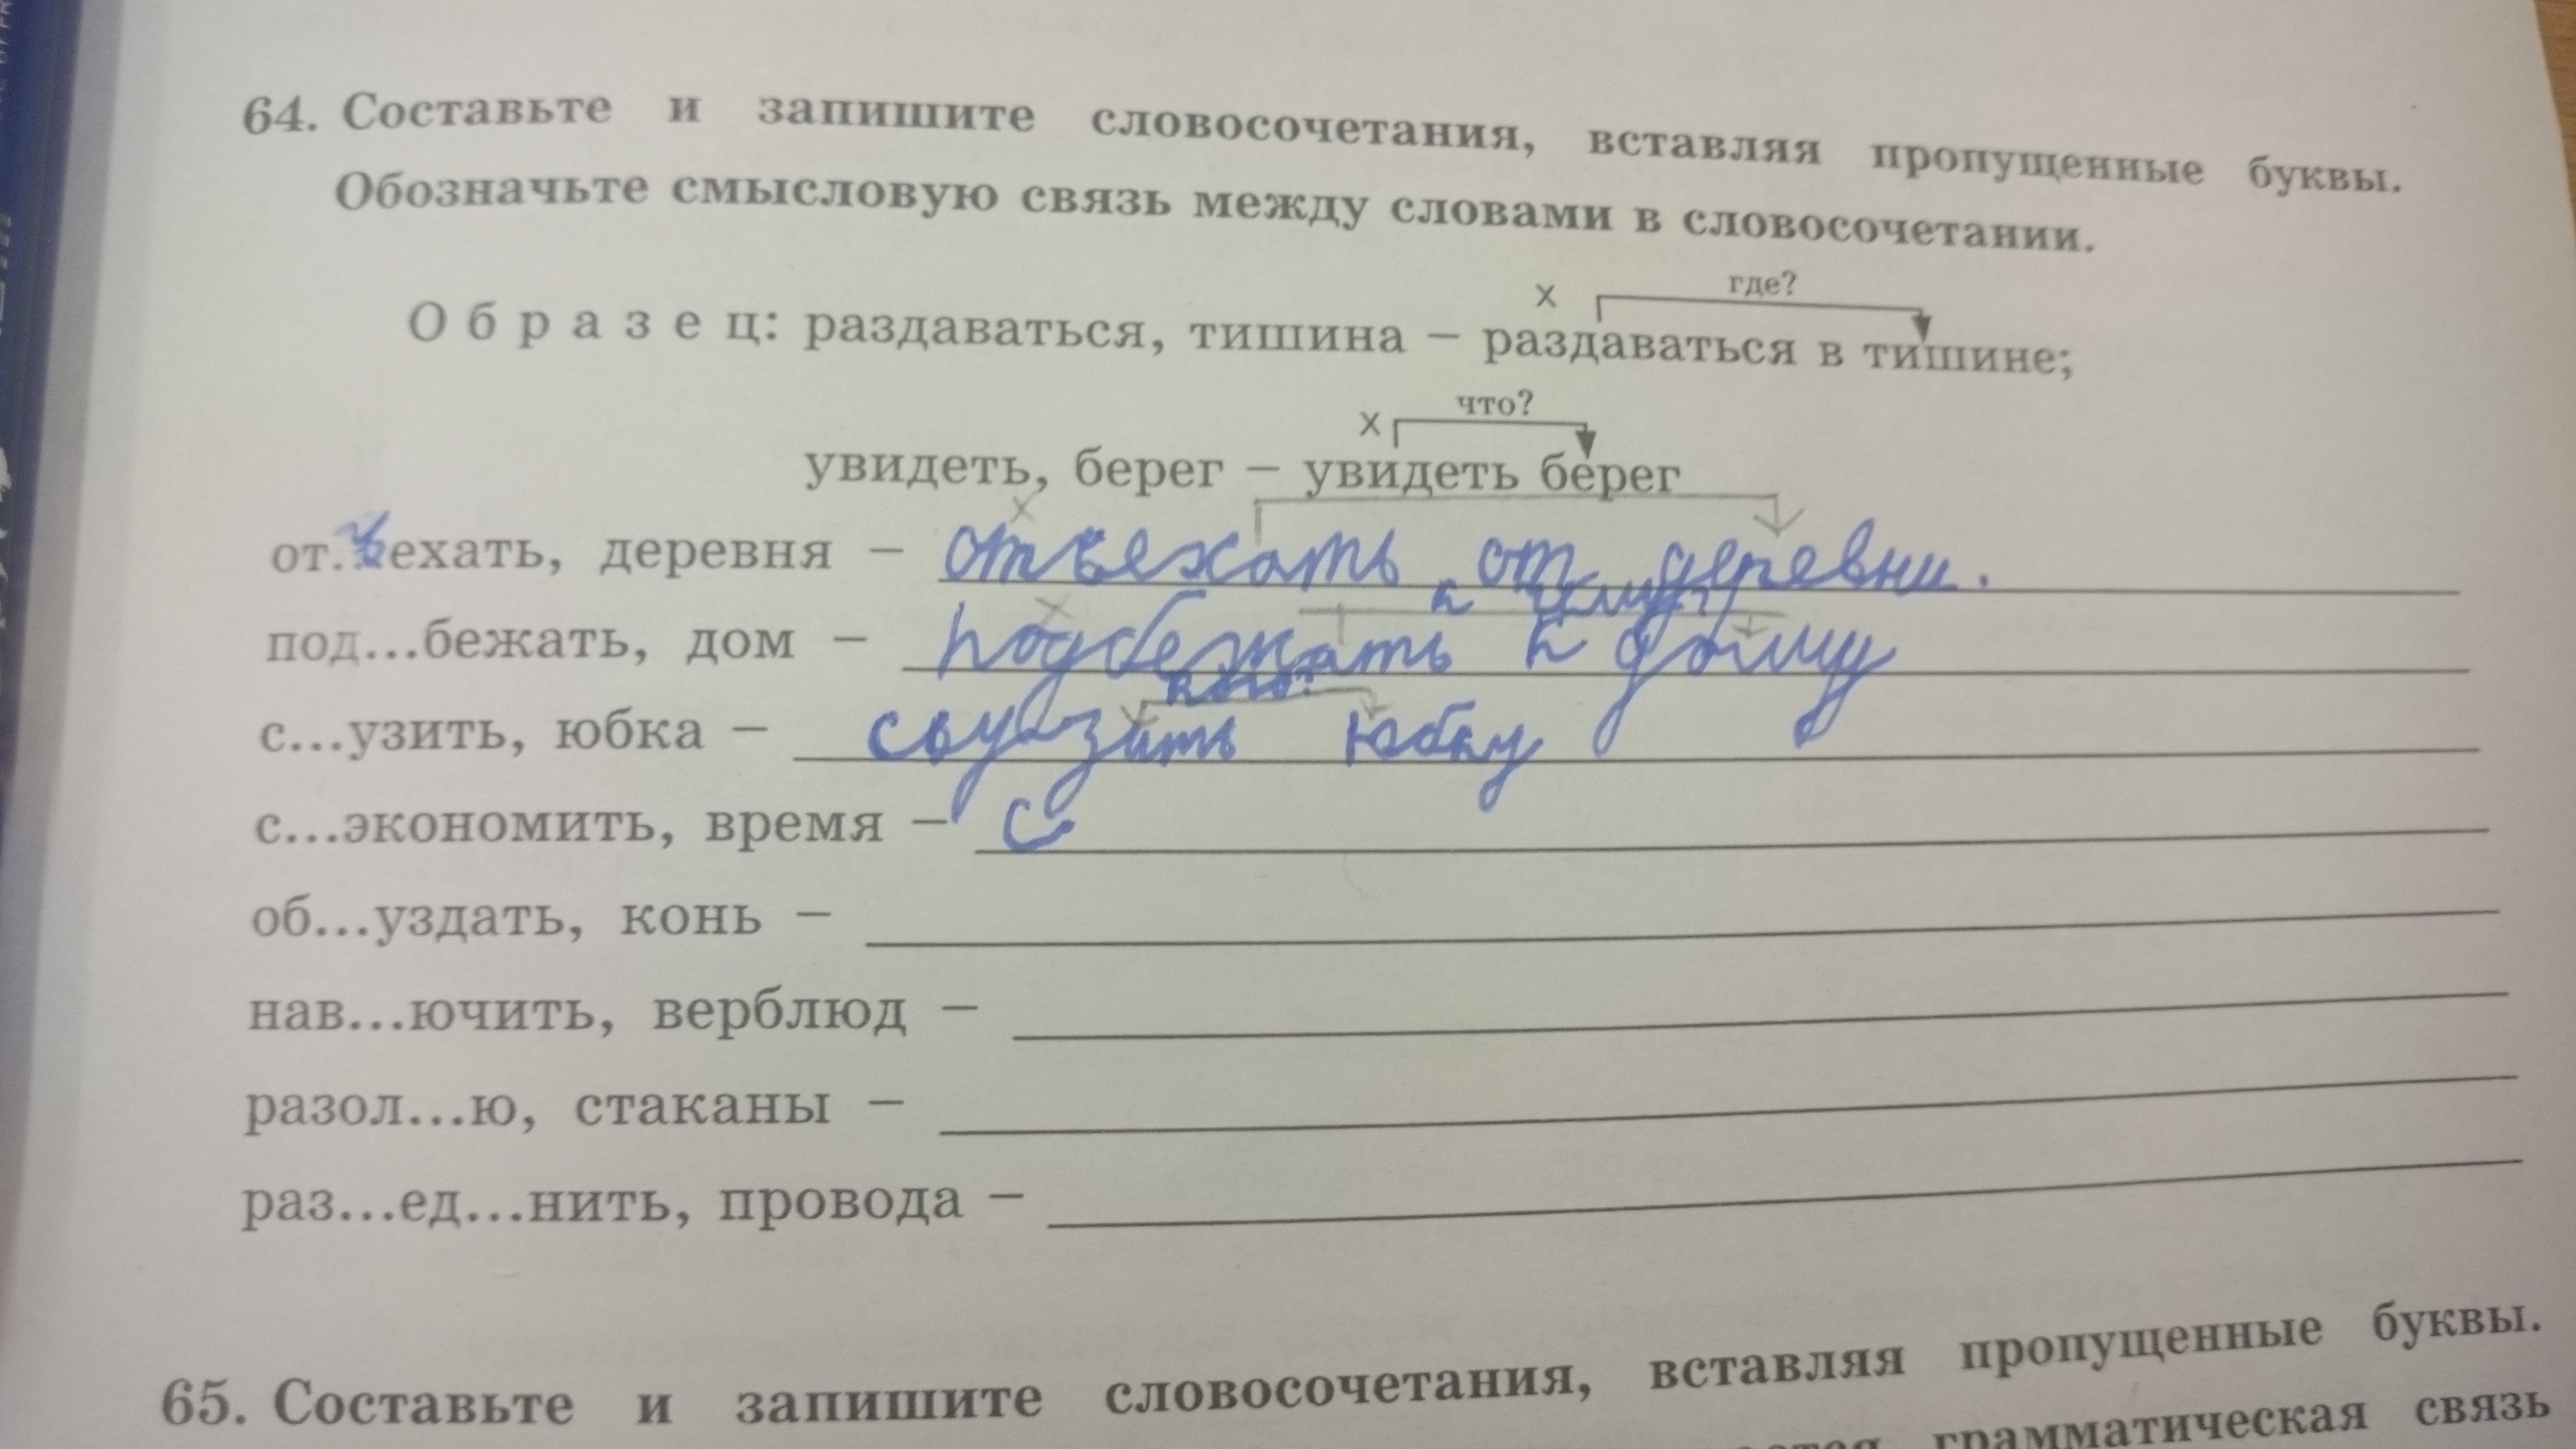 64. Составьте и запишите словосочетания, вставляя пропущенные буквы.
Обозначьте смысловую связь между словами в словосочетании.
х где?
Образец: раздаваться, тишина – раздаваться в тишине;
х что?
увидеть, берег – увидеть берег
х
от.ъехать, деревня – отъехать от деревни.
х к чему?
под...бежать, дом – подбежать к дому
х
с...узить, юбка – сьузить юбку
с...экономить, время – с
об...уздать, конь –
нав...ючить, верблюд –
разол...ю, стаканы –
раз...ед...нить, провода –
65. Составьте и запишите словосочетания, вставляя пропущенные буквы.
грамматическая связь